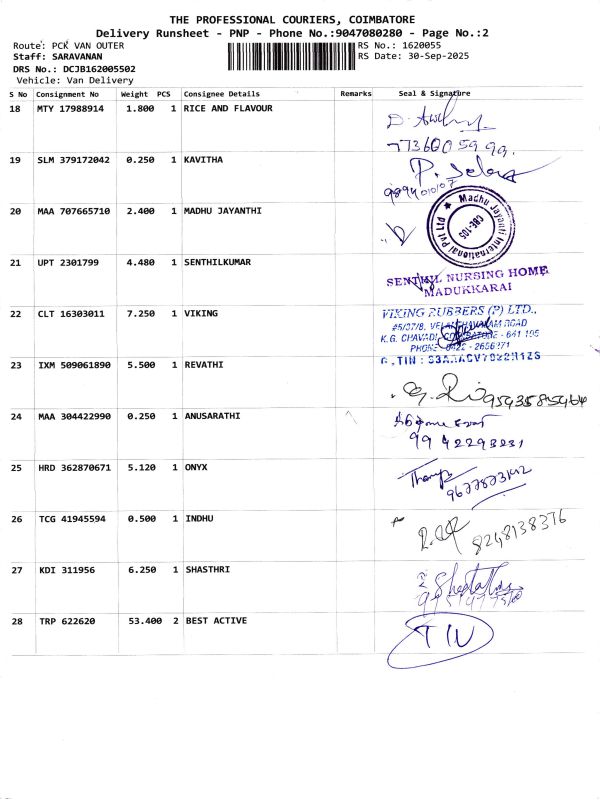 THE PROFESSIONAL COURIERS, COIMBATORE
Delivery Runsheet - PNP - Phone No.:9047080280 - Page No.:2
Route: PCK VAN OUTER RS No.: 1620055
Staff: SARAVANAN RS Date: 30-Sep-2025
DRS No.: DCJB162005502
Vehicle: Van Delivery
S No Consignment No Weight PCS Consignee Details Remarks Seal & Signature
18 MTY 17988914 1.800 1 RICE AND FLAVOUR
7736005999.
19 SLM 379172042 0.250 1 KAVITHA
20 MAA 707665710 2.400 1 MADHU JAYANTHI
Madhu Jayanti International Pvt Ltd
CBE-105
21 UPT 2301799 4.480 1 SENTHILKUMAR
SENTHIL NURSING HOME
MADUKKARAI
22 CLT 16303011 7.250 1 VIKING
VIKING RUBBERS (P) LTD.,
#5/37/8, VELANTHAVALAM ROAD
K.G. CHAVADI, COIMBATORE - 641 105
PHONE: 0422 - 2656271
23 IXM 509061890 5.500 1 REVATHI
24 MAA 304422990 0.250 1 ANUSARATHI
9942293231
25 HRD 362870671 5.120 1 ONYX
26 TCG 41945594 0.500 1 INDHU
8248138376
27 KDI 311956 6.250 1 SHASTHRI
28 TRP 622620 53.400 2 BEST ACTIVE